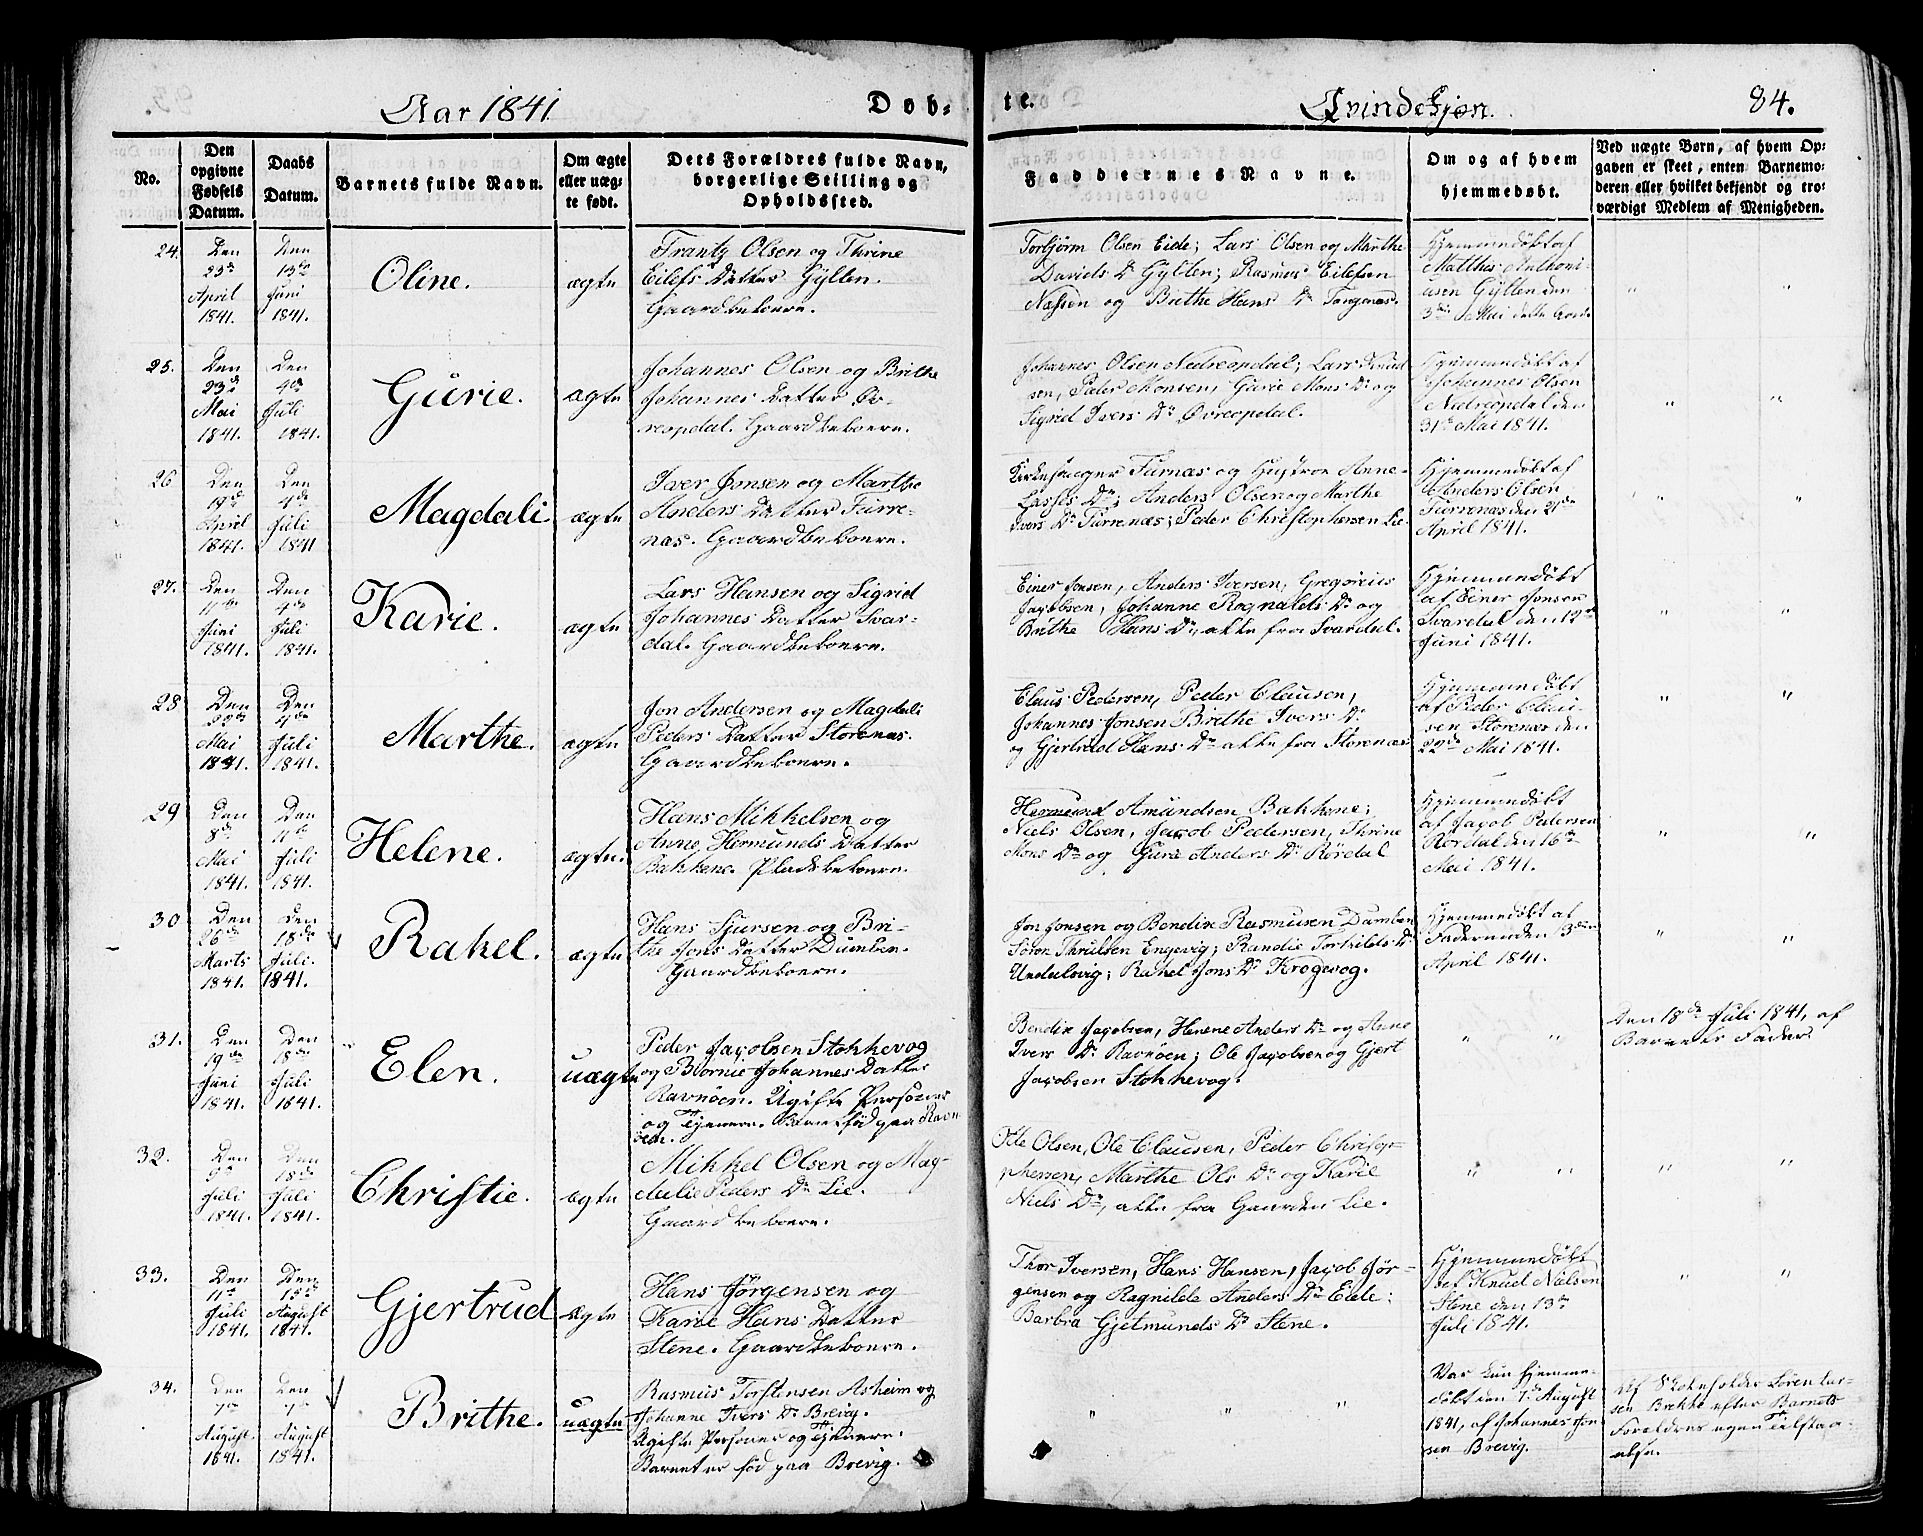 Aar 1841.
Døb-
te.
Qvindekjøn.
84.
No.
Den opgivne Fødsels Datum.
Daabs Datum.
Barnets fulde Navn.
Om ægte eller uæg-
te født.
Dets Forældres fulde Navn,
borgerlige Stilling og
Opholdssted.
Faddernes Navne.
Om og af hvem
hjemmedøbt.
Ved uægte Børn, af hvem Op-
gaven er skeet, enten Barnemo-
deren eller hvilket bekjendt og tro-
værdigt Medlem af Menigheden.
24.
Den
23de
April
1841.
Den
13de
Juni
1841.
Oline.
ægte
Frantz Olsen og Thrine
Eilefs Datter Gytten.
Gaardbeboere.
Torbjørn Olsen Eide; Lars Olsen og Marthe
Davids Dr Gytten; Rasmus Eilefsen
Næssen og Brithe Hans Dr Tangenæs.
Hjemmedøbt af
Matthes Anthoni-
usen Gytten den
3die Mai dette Aar.
" "
25.
Den
23de
Mai
1841.
Den
4de
Juli
1841.
Gurie.
ægte
Johannes Olsen og Brithe
Johannes Datter Øv-
reopdal. Gaardbeboere.
Johannes Olsen Nedreopdal; Lars Knud
sen, Peder Monsen, Gurie Mons Dr og
Sigrid Ivers Dr Øvreopdal.
Hjemmedøbt af
Johannes Olsen
Nedreopdal den
31te Mai 1841.
" "
26
Den
19de
April
1841.
Den
4de
Juli
1841
Magdali
ægte
Iver Jonsen og Marthe
Anders Datter Furre-
næs. Gaardbeboere.
Kirkesanger Furnæs og Hustroe Anne
Lasses Dr; Anders Olsen og Marthe
Ivers Dr Furrenæs; Peder Christophersen Lie
Hjemmedøbt af
Anders Olsen
Furrenæs den 21de
April 1841.
" "
27.
Den
11te
Juni
1841.
Den
4de
Juli
1841.
Karie.
ægte
Lars Hansen og Sigrid
Johannes Datter Svar-
dal. Gaardbeboere.
Einer Jonsen, Anders Iversen, Gregorius
Jacobsen, Johanne Rognalds Dr og
Brithe Hans Dr, alle fra Svardal.
Hjemmedøbt
af Einer Jonsen
Svardal den 12te
Juni 1841.
" "
28
Den
22de
Mai
1841.
Den
4de
Juli
1841.
Marthe.
ægte
Jon Andersen og Magdali
Peders Datter Storenæs.
Gaardbeboere.
Claus Pedersen, Peder Clausen,
Johannes Jonsen Brithe Ivers Dr
og Gjertrud Hans Dr alle fra Storenæs
Hjemmedøbt
af Peder Clau-
sen Storenæs den
22de Mai 1841.
" "
29
Den
8de
Mai
1841.
Den
11te
Juli
1841.
Helene.
ægte.
Hans Mikkelsen og
Anne Hermunds Datter
Bakkene. Pladsbeboere.
Hermund Amundsen Bakkene;
Niels Olsen, Jacob Pedersen, Thrine
Mons Dr og Guri Anders Dr Rørdal
Hjemmedøbt
af Jacob Pedersen
Rørdal den 16de
Mai 1841.
" "
30
Den
26de
Marts
1841.
Den
18de
Juli.
1841.
Rakel.
ægte
Hans Sjursen og Bri-
the Jons Datter Dumben.
Gaardbeboere.
Jon Jonsen og Bendix Rasmusen Dumben
Søren Thrulsen Engevig; Randie Torkilds Dr
Undalsvig; Rakel Jons Dr Krogevog.
Hjemmedøbt af
Faderen den 3die
April 1841.
" "
31.
Den
19de
Juni
1841.
Den
18de
Juli
1841.
Elen.
uægte
Peder Jacobsen Stokkevog
og Børnie Johannes Datter
Ravnøen. Ugifte Personer
og Tjenere. Barnet fød paa Ravn
øen.
Bendix Jacobsen, Helene Anders Dr og Anne
Ivers Dr Ravnøen; Ole Jacobsen og Gjert
Jacobsen Stokkevog.
" "
Den 18de Juli 1841, af
Barnets Fader.
32.
Den
9de
Juli
1841.
Den
18de
Juli
1841.
Christie.
ægte
Mikkel Olsen og Mag-
delie Peders Dr Lie.
Gaardbeboere.
Ole Olsen, Ole Clausen, Peder Christop-
phersen, Marthe Ols Dr og Karie
Niels Dr, alle fra Gaarden Lie.
" "
" "
33.
Den
11te
Juli
1841.
Den
15de
August
1841.
Gjertrud
ægte
Hans Jørgensen og
Karie Hans Datter
Stene. Gaardbeboere.
Thor Iversen, Hans Hansen, Jacob Jør-
gensen og Ragnilde Anders Dr Eide;
Barbra Gjetmunds Dr Stene.
Hjemmedøbt
af Knud Nielsen
Stene den 13de
Juli 1841.
" "
34.
Den
7de
August
1841.
Den
7de
August
1841.
Brithe.
uægte
Rasmus Torstensen Asheim og
Johanne Ivers Dr Brevig.
Ugifte Personer og Tjenere.
Barnet er fød paa Brevig.
" " "
Var kun hjemme-
døbt den 7de August
1841, af Johannes Jon
sen Brevig.
Af Skoleholder Sørenter-
sen Brekke efter Barnets
Forældres egen Tilstaa-
else.